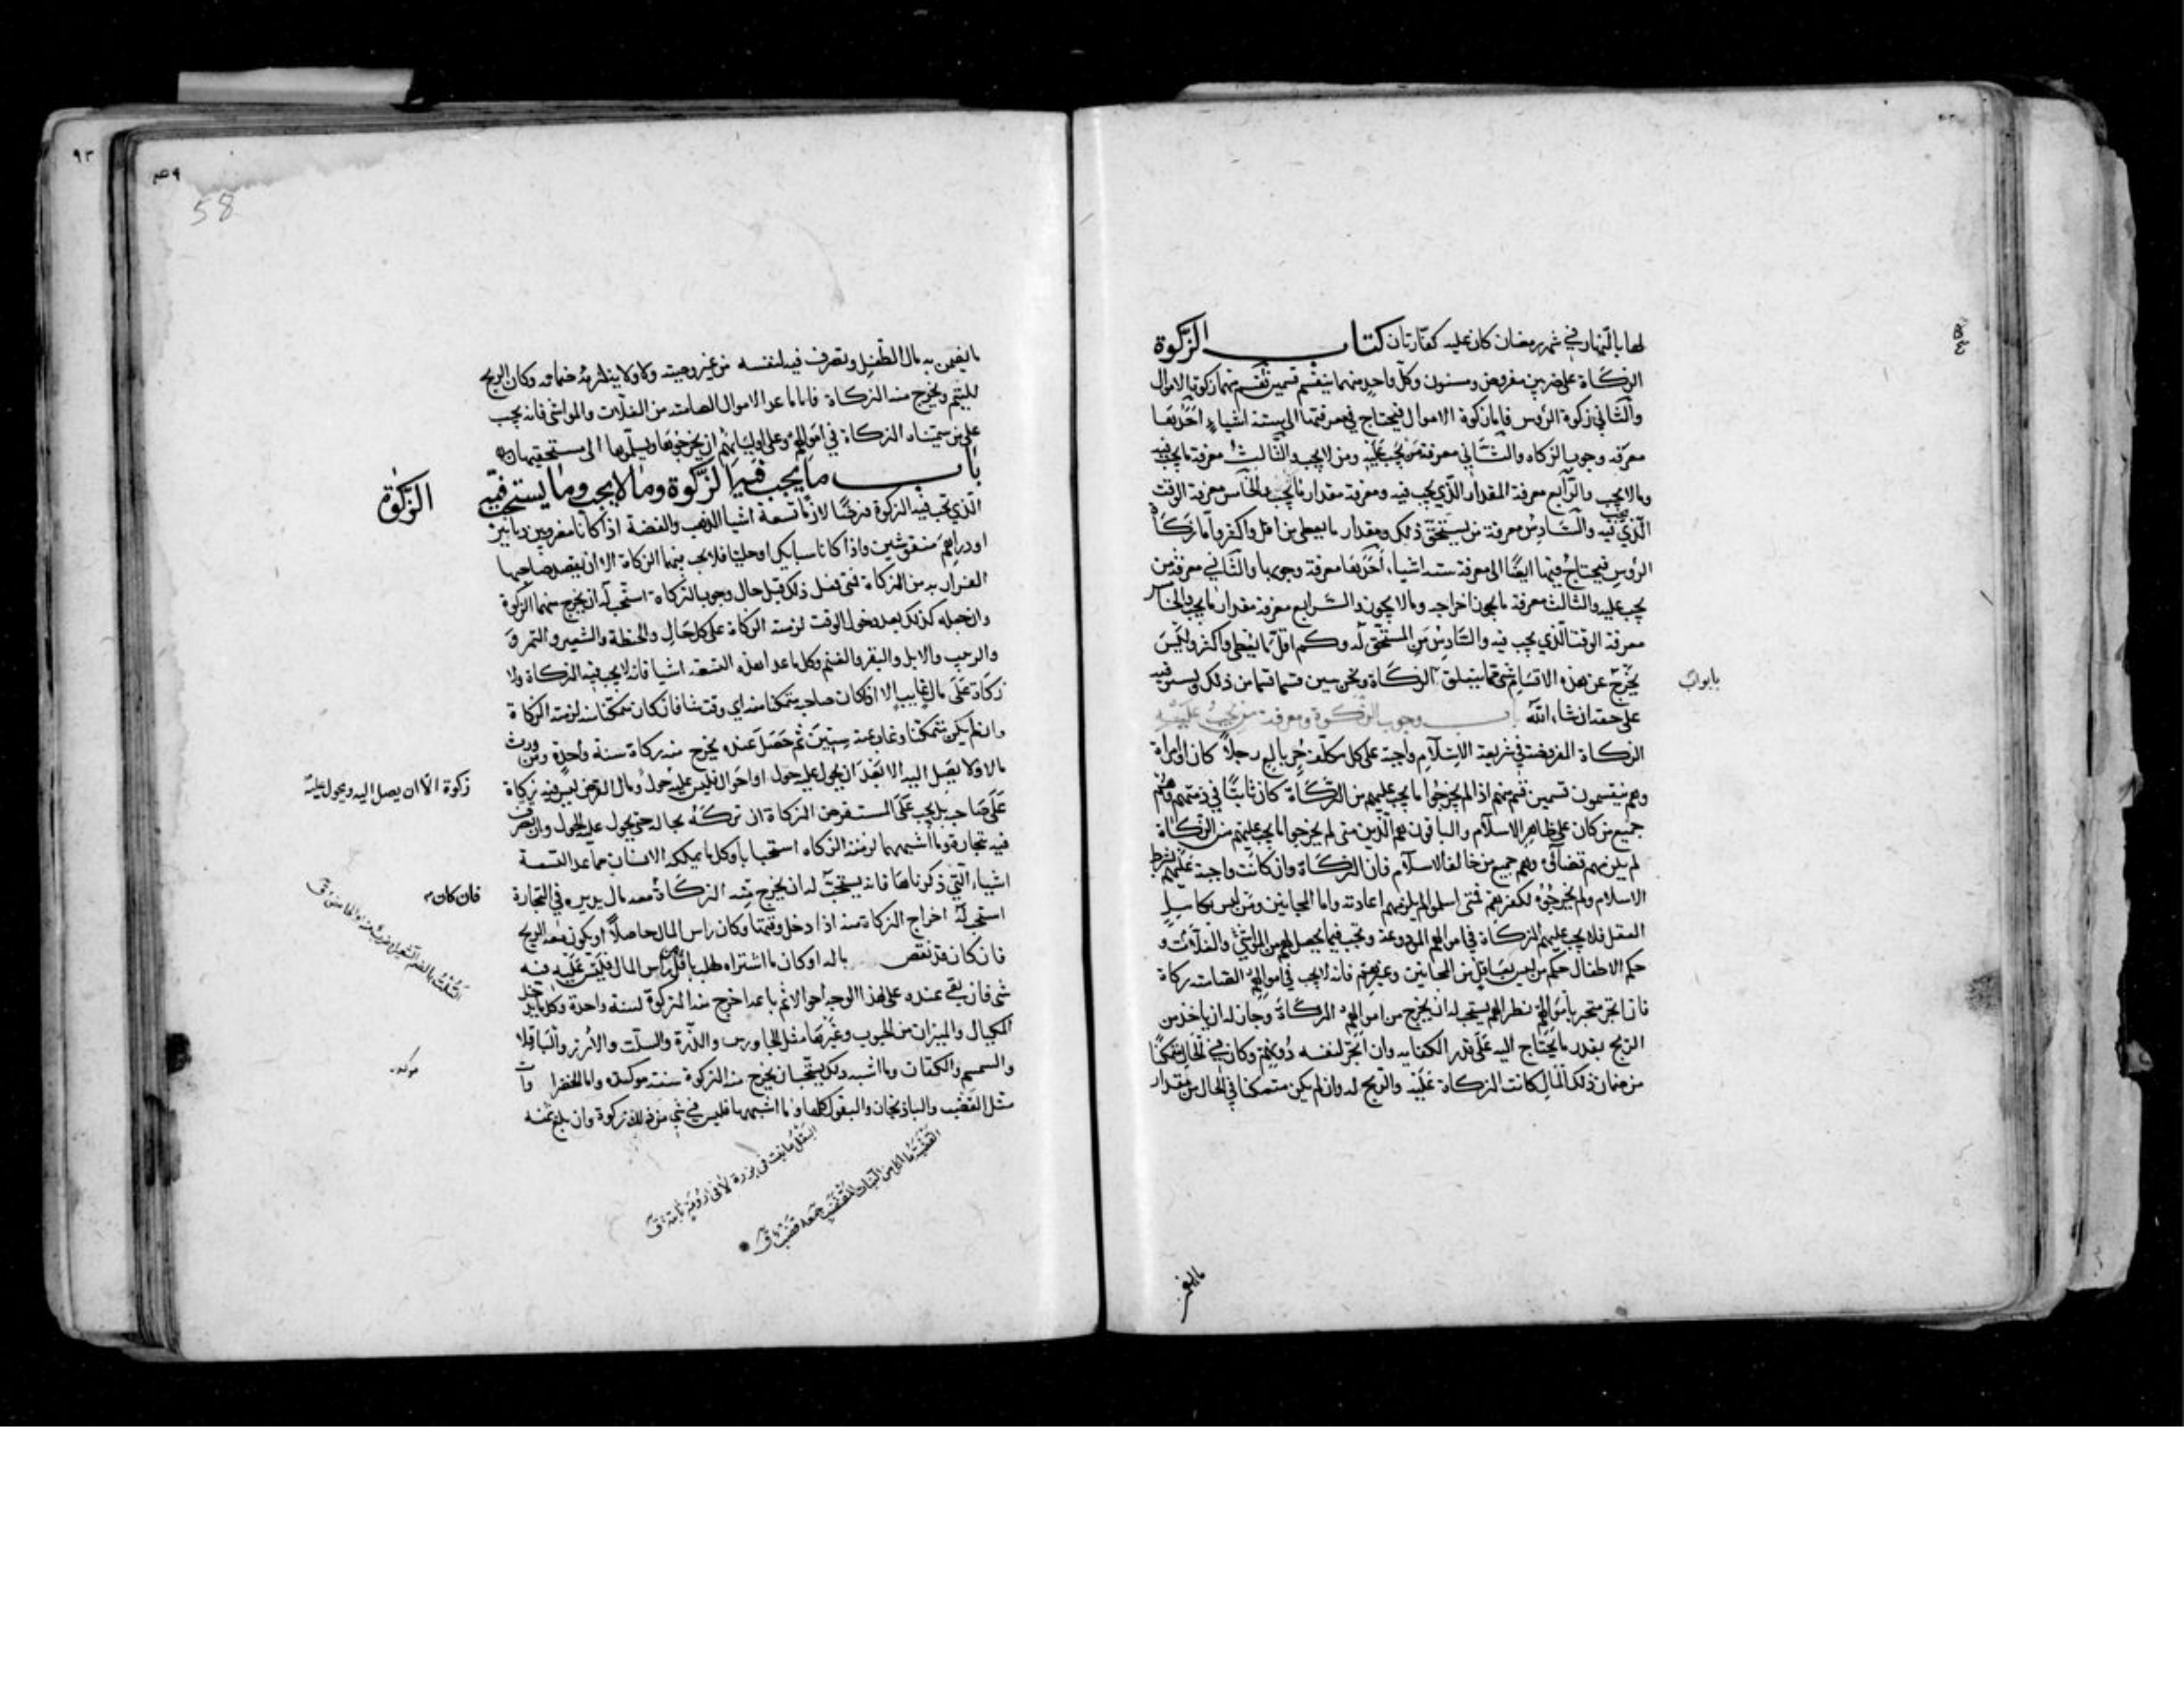 لها بالنهار في شهر رمضان كان عليه كفارتان كتاب الزكوة
الزكاة على ضربين مفروض ومسنون وكل واحد منهما ينقسم قسمين قسم منهما زكوة الاموال
والثاني زكوة الرؤس فاما زكوة الاموال فيحتاج في معرفتها الى ستة اشياء احدها
معرفة وجوب الزكاه والثاني معرفة من يجب عليه ومن لا يجب والثالث معرفة ما يجب فيه
وما لا يجب والرابع معرفة المقدار الذي يجب فيه ومعرفة مقدار ما يجب والخامس معرفة الوقت
الذي يجب فيه والسادس معرفة من يستحق ذلك ومقدار ما يعطى من اقل واكثر واما زكاة
الرؤس فيحتاج فيها ايضا الى معرفة ستة اشياء احدها معرفة وجوبها والثاني معرفة من
يجب عليه والثالث معرفة ما يجوز اخراجه وما لا يجوز والرابع معرفة مقدار ما يجب والخامس
معرفة الوقت الذي يجب فيه والسادس من المستحق له وكم اقل ما يعطى واكثر وليس
يخرج عن هذه الاقسام شئ مما يتعلق بالزكاة ونحن نبين قسما قسما من ذلك ونستوفيه
بابواب
على حقه ان شاء الله باب وجوب الزكوة ومعرفة من يجب عليه
الزكاة المفروضة في شريعة الاسلام واجبة على كل مكلف حر بالغ رجلا كان او امراة
وهم ينقسمون قسمين قسم منهم اذا لم يخرجوا ما يجب عليهم من الزكاة كان ثابتا في ذمتهم وهم
جميع من كان على ظاهر الاسلام والباقون هم الذين متى لم يخرجوا ما يجب عليهم من الزكاة
لم يلزمهم قضاؤه وهم جميع من خالف الاسلام فان الزكاة وان كانت واجبة عليهم بشرط
الاسلام ولم يخرجوه لكفرهم فمتى اسلموا لم يلزمهم اعادته واما المجانين ومن ليس بكامل
العقل فلا يجب عليهم الزكاة في اموالهم المودوعة وتجب فيما يحصل لهم من المواشي والغلات و
حكم الاطفال حكم من ليس بعاقل من المجانين وغيرهم فانه لا يجب في اموالهم الصامتة زكاة
فان اتجر متجر باموالهم نظرا لهم يستحب له ان يخرج من اموالهم الزكاة وجاز له ان ياخذ من
الربح بقدر ما يحتاج اليه على قدر الكفايه وان اتجر لنفسه دونهم وكان في الحال متمكنا
من ضمان ذلك المال كانت الزكاة عليه والربح له وان لم يكن متمكنا في الحال من مقدار
ما يفي
٩٣
٤٩
58
ما يفي به مال الطفل وتصرف فيه لنفسه من غير وصية ولا ولاية لزمه ضمانه وكان الربح
لليتيم ويخرج منه الزكاة فاما ما عدا الاموال الصامتة من الغلات والمواشي فانه يجب
على من سميناه الزكاة في اموالهم وعلى اوليائهم ان يخرجوها ويسلموها الى مستحقيها
باب ما يجب فيه الزكوة وما لا يجب وما يستحب فيه الزكوة
الذي تجب فيه الزكوة فرضا لازما تسعة اشيا الذهب والفضة اذا كانا مضروبين دنانير
او دراهم منقوشين واذا كانا سبايك او حليا فلا يجب فيهما الزكاة الا ان يقصد صاحبها
الفرار به من الزكاة فمتى فعل ذلك قبل حال وجوب الزكاة استحب له ان يخرج منهما الزكوة
وان جعله كذلك بعد دخول الوقت لزمته الزكاة على كل حال والحنطة والشعير والتمر و
والزبيب والابل والبقر والغنم وكل ما عدا هذه التسعة اشيا فانه لا يجب فيه الزكاة ولا
زكاة على مال غايب الا اذا كان صاحبه متمكنا منه اي وقت شا فان كان متمكنا منه لزمته الزكاة
وان لم يكن متمكنا وغاب عنه سنين ثم حصل عنده يخرج منه زكاة سنة واحدة ومن ورث
مالا ولا يصل اليه الا بعد ان يحول عليه حول او احوال فليس عليه حول ومال القرض ليس فيه زكاة
زكوة الا ان يصل اليه ويحول عليه
على صاحبه بل يجب على المستقرض الزكاة ان تركه بحاله حتى يحول عليه الحول وان تصرف
فيه بتجارة وما اشبهها لزمته الزكاه استحبابا وكل ما يملكه الانسان مما عدا التسعة
اشياء التي ذكرناها فانه يستحب له ان يخرج منه الزكاة معه مال يديره في التجارة
فان كان
استحب له اخراج الزكاة منه اذا دخل وقتها وكان راس المال حاصلا او يكون معه الربح
فان كان قد نقص ماله او كان ما اشتراه طلب باقل من راس المال فليس عليه فيه
شئ فان بقي عنده على هذا الوجه احوالا ثم باعه اخرج منه الزكوة لسنة واحدة وكل ما يدخل
المكيال والميزان من الحبوب وغيرها مثل الجاورس والذرة والسلت والارز والباقلا
والسمسم والكتان وما اشبه ذلك يستحب ان يخرج منه الزكوة سنة موكدة واما الخضراوات
موكده
مثل القضب والباذنجان والبقول كلها وما اشبهها فليس في شئ من ذلك زكوة وان بلغ ثمنه
السلت بالضم الشعير او ضرب منه او الحامض منه ق
البقل ما نبت في بزره لا في ارومة ثابتة ق